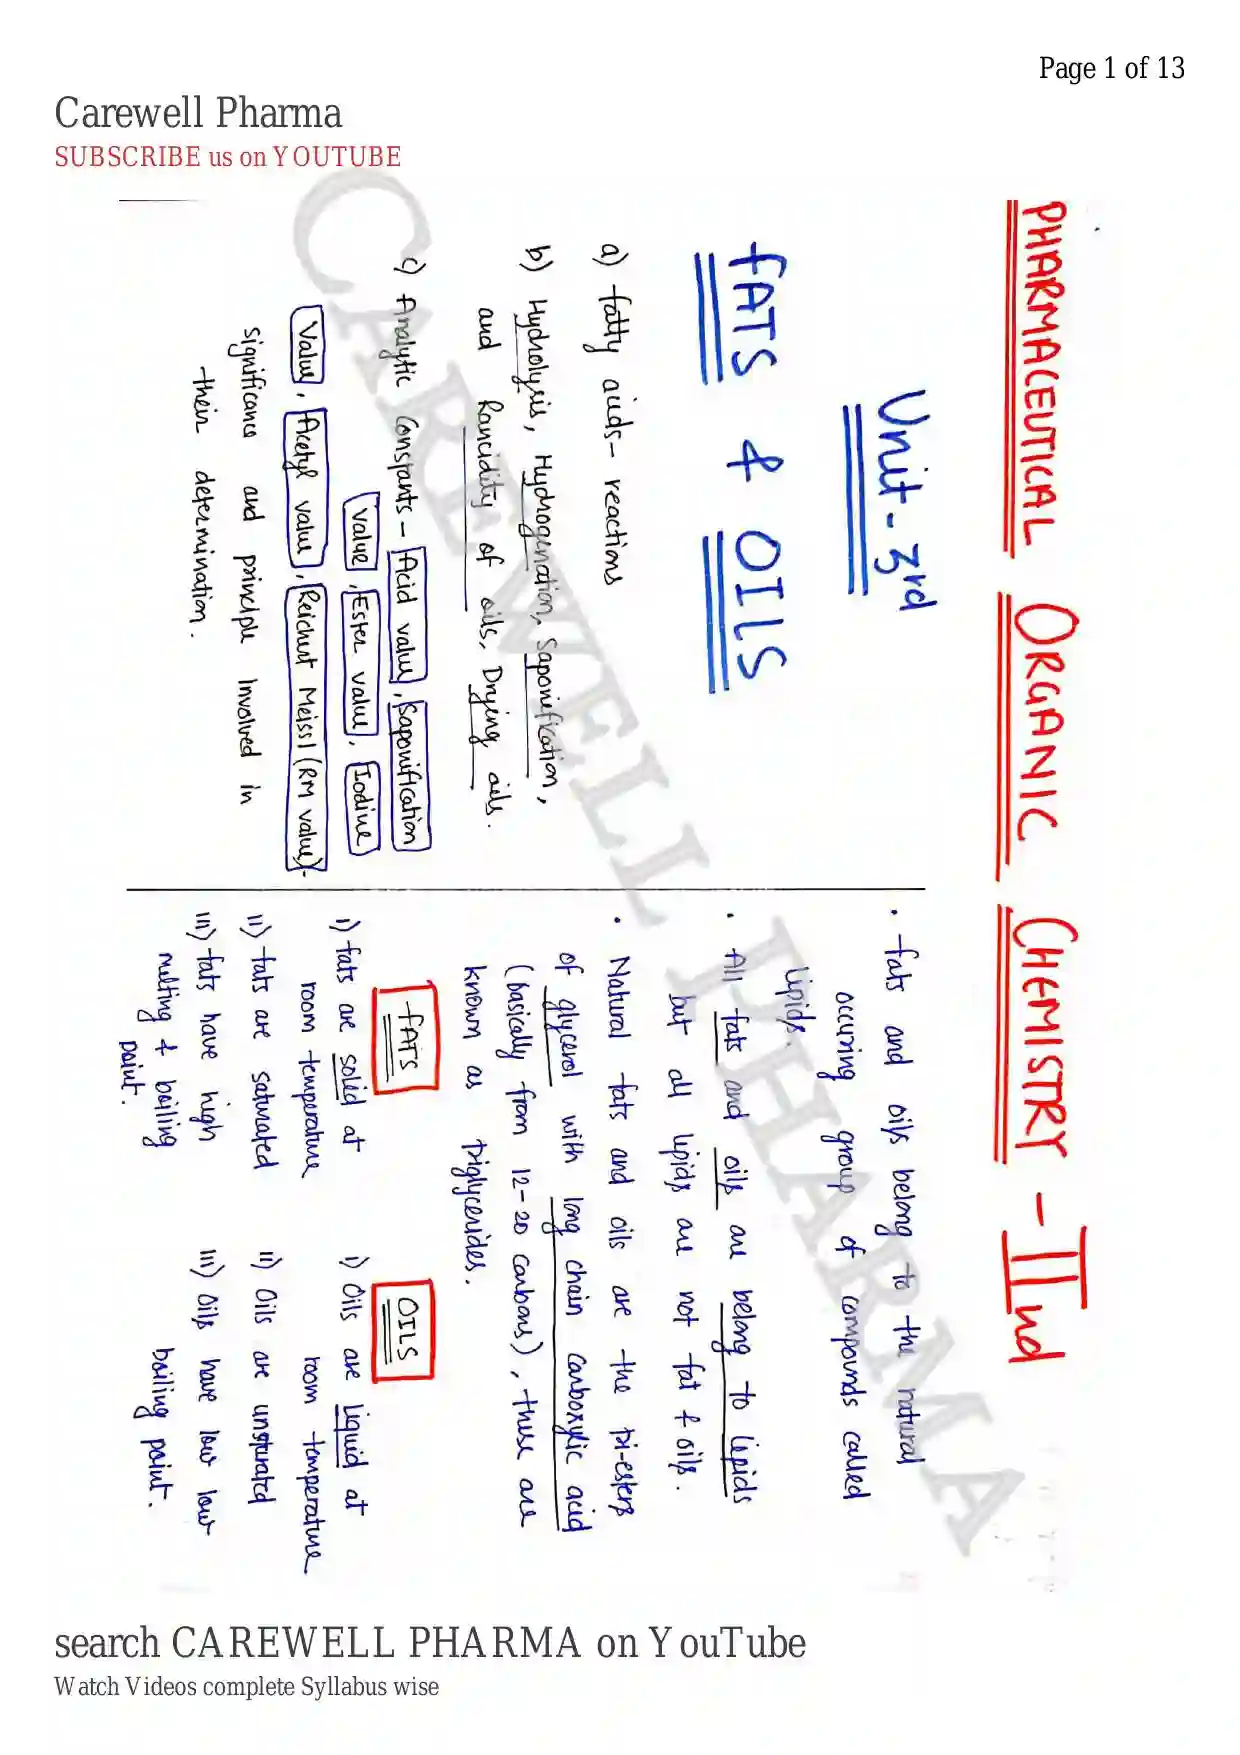 Page 1 of 13
Carewell Pharma
SUBSCRIBE us on YOUTUBE
PHARMACEUTICAL ORGANIC CHEMISTRY - IInd
Unit - 3rd
FATS & OILS
a) fatty acids - reactions
b) Hydrolysis, Hydrogenation, Saponification,
and Rancidity of oils, Drying oils.
c) Analytic Constants - Acid value, Saponification
Value, Ester value, Iodine
Value, Acetyl value, Reichert Meissl (RM value) -
significance and principle Involved in
their determination.
• fats and oils belong to the natural
occuring group of compounds called
Lipids.
• All fats and oils are belong to lipids
but all lipids are not fat & oils.
• Natural fats and oils are the tri-esters
of glycerol with long chain carboxylic acid
(basically from 12-20 carbons), these are
known as triglycerides.
FATS
i) fats are solid at
room temperature
ii) fats are saturated
iii) fats have high
melting & boiling
point.
OILS
i) Oils are liquid at
room temperature
ii) Oils are unsturated
iii) Oils have low low
boiling point.
CAREWELL PHARMA
search CAREWELL PHARMA on YouTube
Watch Videos complete Syllabus wise